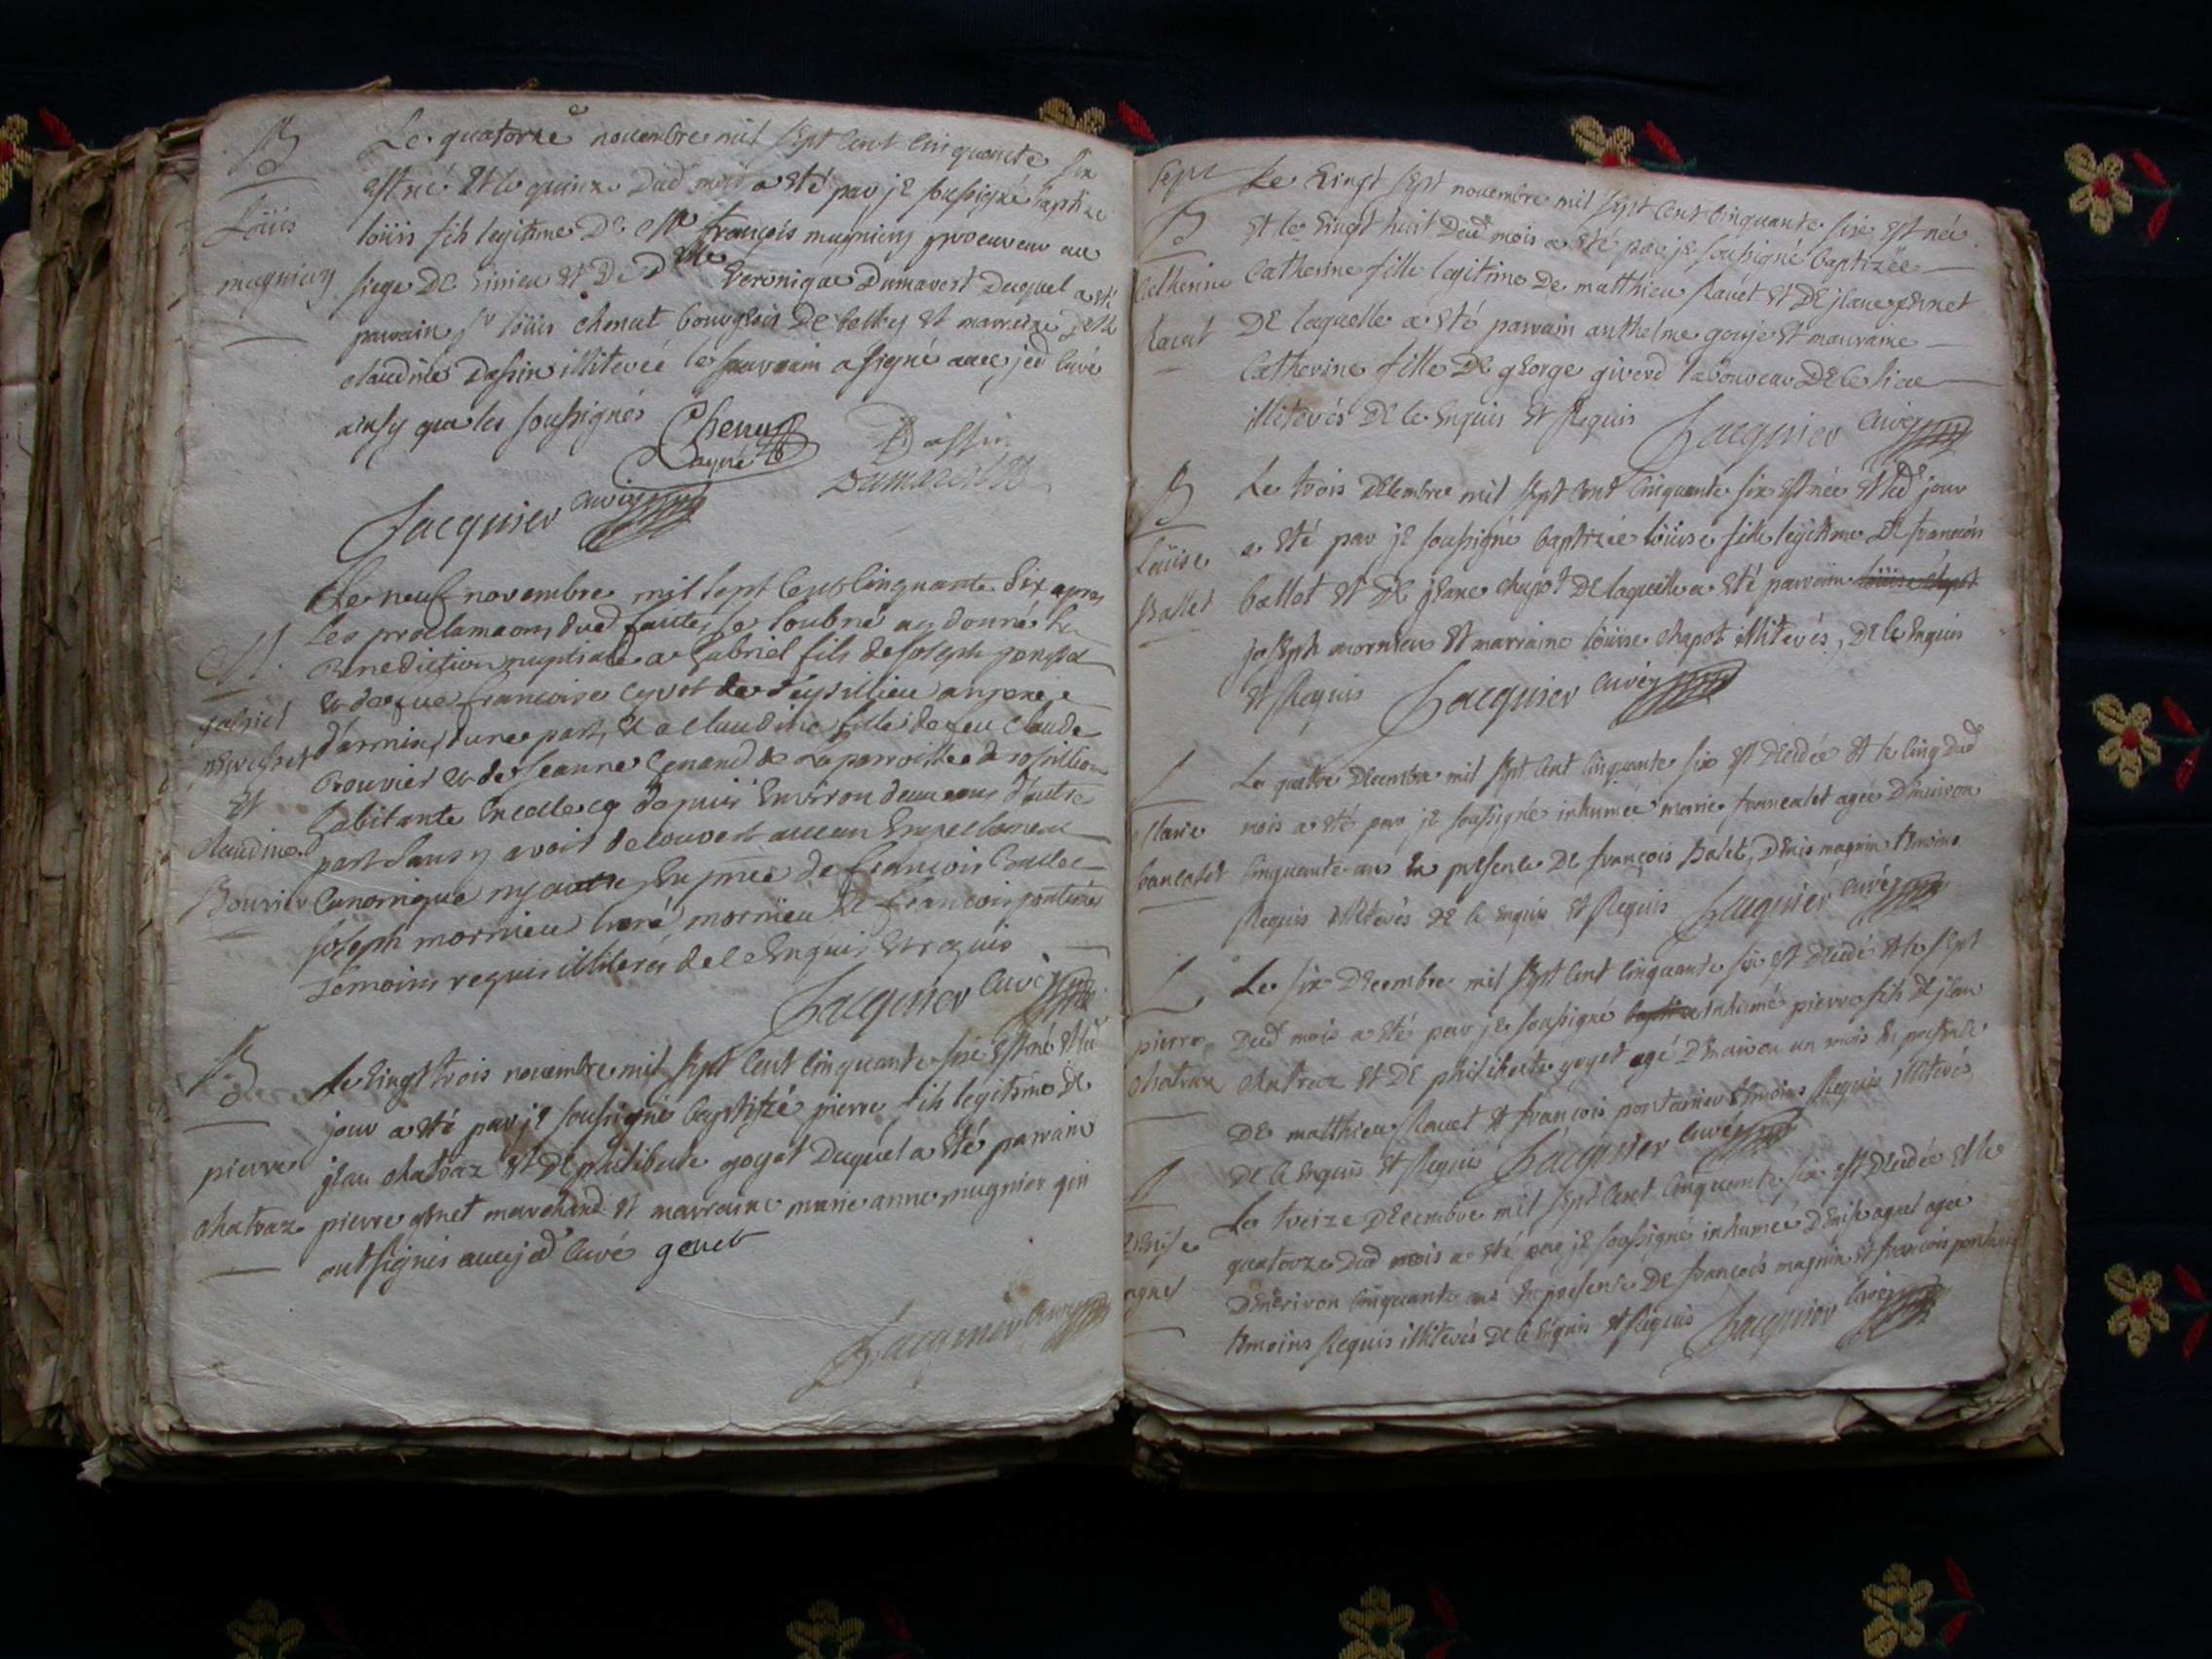 B
Loüis
mugniery
Le quatorze novembre mil sept cent cinquante six
est né et le quinze dud mois a été par je soussigné baptizé
loüis fils legitime de Mr françois mugniery procureur au
siege de et de Dlle veronique Dumarest duquel a été
parrain sr loüis chenut bourgeois de belley et marraine Delle
claudine Dassin illiterée le parrain a signé avec jed curé
ainsy que les soussignés
Dassin
Jacquier curé
M.
gabriel
et
claudine
Bouvier
Le neuf novembre mil sept cent cinquante six apres
les proclamaons dued faites je soubné ay donné la
Benediction nuptiale a Gabriel fils de Joseph
& de françoise de
d'armix d'une part, & a Claudine fille de feu Claude
Bouvier & de Jeanne de la parroisse de rossillion
habitante en depuis environ deux ans d'autre
part sans y avoir decouvert aucun empechement
Canonique ny autre, En pnce de François
Joseph mornieu mornieu & françois
Temoins requis illiterés de ce Enquis & requis
Jacquier curé
B
pierre
chatraz
Le vingt trois novembre mil sept cent cinquante six est né et led
jour a été par je soussigné baptizé pierre fils legitime de
jean chatraz et de philiberte goyet duquel a été parrain
pierre genet marchand et marraine marie anne mugnier qui
ont signés avec jed curé genet
Jacquier curé
Sept
B
Catherine
Ravet
Le vingt sept novembre mil sept cent cinquante six est née
et le vingt huit dud mois a été par je soussigné baptizée
Catherine fille legitime de matthieu Ravet et de jeane genet
de laquelle a été parrain anthelme gouje et marraine
Catherine fille de george giverd laboureur de ce lieu
illiterés de ce enquis et Requis Jacquier curé
B
Loüise
Ballet
Le trois decembre mil sept cent cinquante six est née et led jour
a été par je soussigné baptizée loüise fille legitime de françois
ballet et de jeane chapot de laquelle a été parrain loüise chapot
joseph mornieu et marraine loüise chapot illiterés, de ce enquis
et Requis Jacquier curé
Marie
francalet
Le quatre decembre mil sept cent cinquante six est decedée et le cinq dud
mois a été par je soussigné inhumée marie francalet agée d'environ
cinquante ans en presence de françois balet, denis magnin temoins
Requis illiterés de ce enquis et Requis Jacquier curé
pierre
chatraz
Le six decembre mil sept cent cinquante six est decedé et le sept
dud mois a été par je soussigné inhumé pierre fils de jean
chatraz et de philiberte goyet agé d'environ un mois en presence
de matthieu Ravet et françois pontanier temoins Requis illiterés
de ce enquis et Requis Jacquier curé
denise
agnel
Le treize decembre mil sept cent cinquante six est decedée et le
quatorze dud mois a été par je soussigné inhumée denise agnel agée
d'environ cinquante ans en presence de françois magnin et françois
temoins Requis illiterés de ce enquis et Requis Jacquier curé